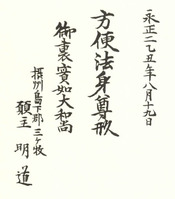 永正二乙丑年八月十九日
方便法身尊形
御裏實如大和尚
摂州島下郡三ヶ牧
願主 明道